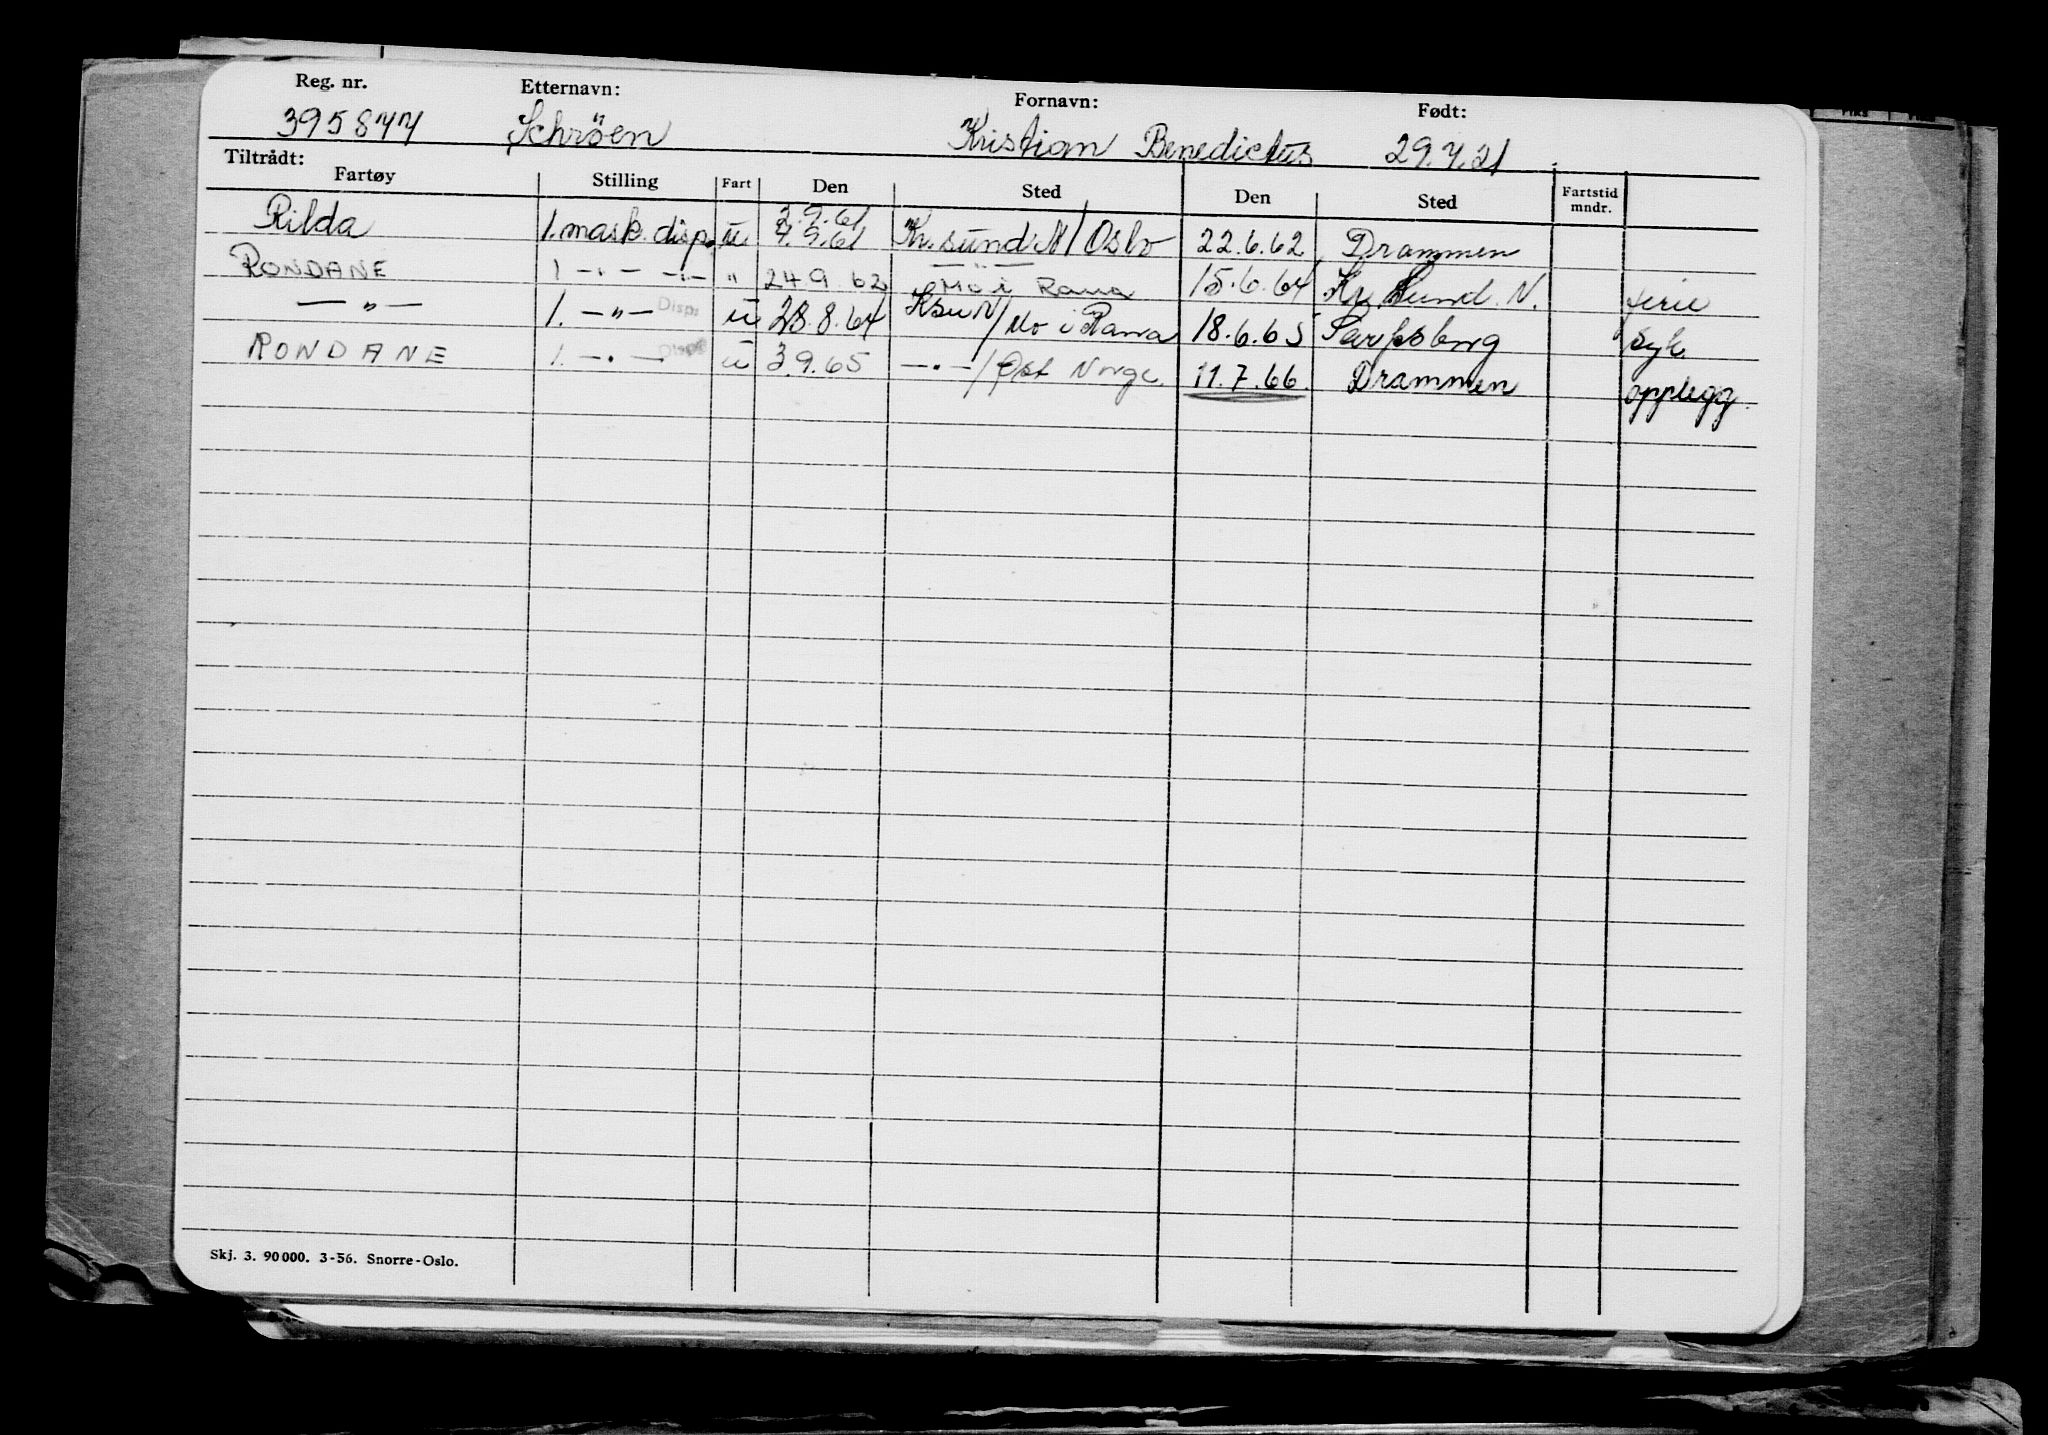 Reg. nr. Etternavn: Fornavn: Født:
395877 Schröen Kristian Benedictus 29.7.21
Tiltrådt:
Fartøy Stilling Fart Den Sted Den Sted Fartstid mndr.
2.9.61
Rilda 1. mask. disp. u 7.9.61 Kr.sund N / Oslo 22.6.62 Drammen
RONDANE 1 —"— —"— " 24.9.62 Mo i Rana 15.6.64 Kr. Sund. N. ferie
—"— 1. —"— Disp. u 28.8.64 Ksu N / Mo i Rana 18.6.65 Sarpsborg syk
RONDANE 1. —"— Disp u 3.9.65 —"— / Øst Norge. 11.7.66. Drammen opplegg.
Skj. 3. 90 000. 3-56. Snorre-Oslo.